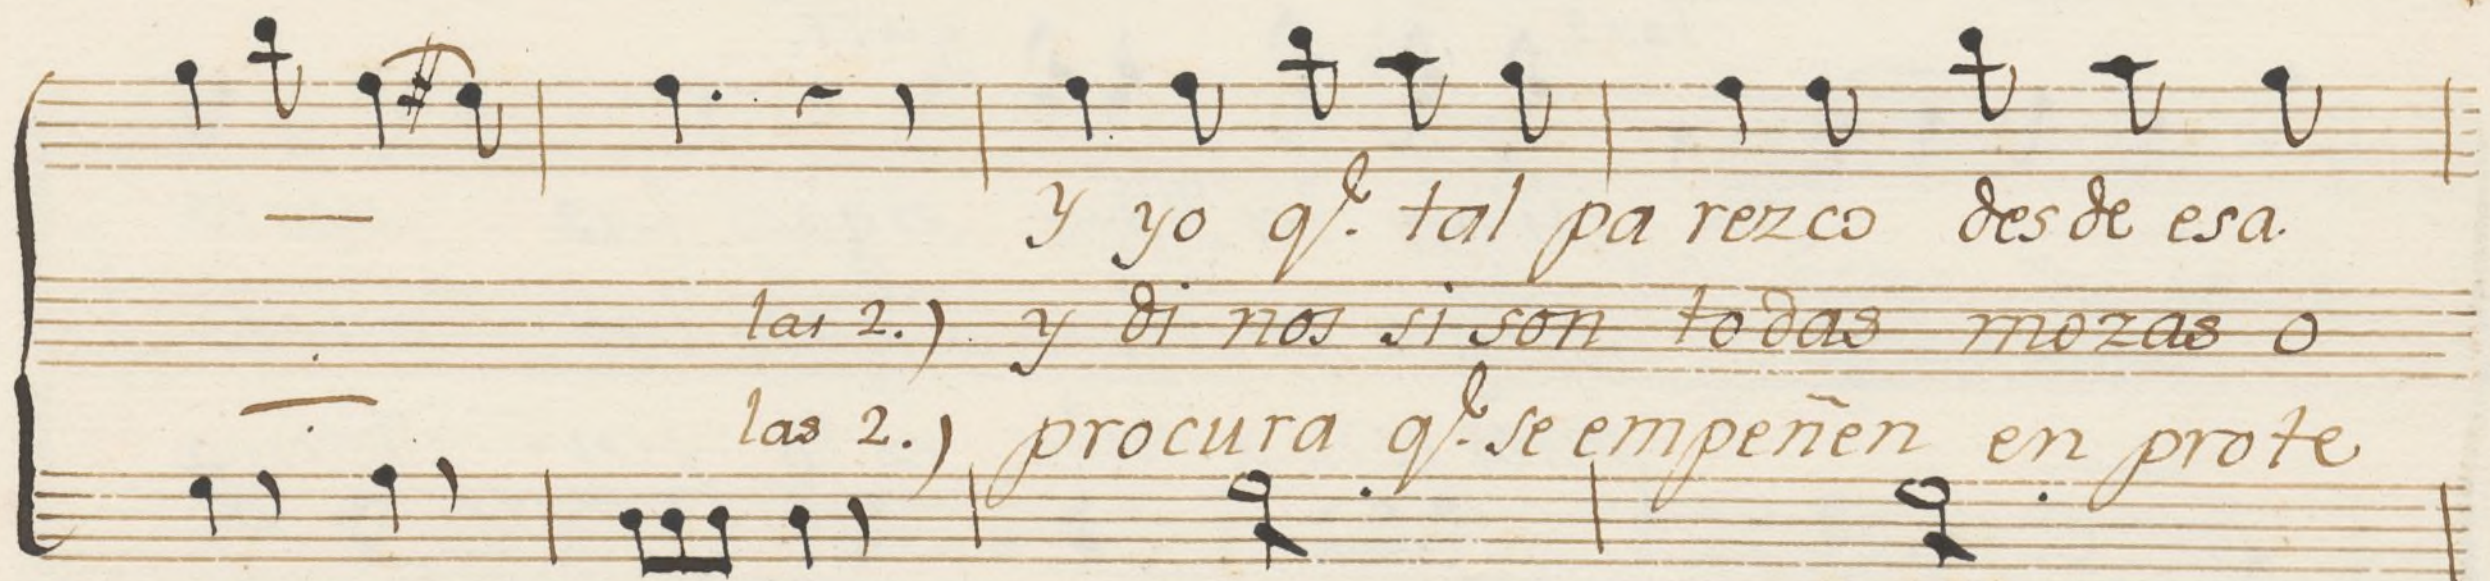 y yo qe. tal pa rezco des de esa.
las 2.) y di nos si son todas mozas o
las 2.) procura qe. se empeñen en prote